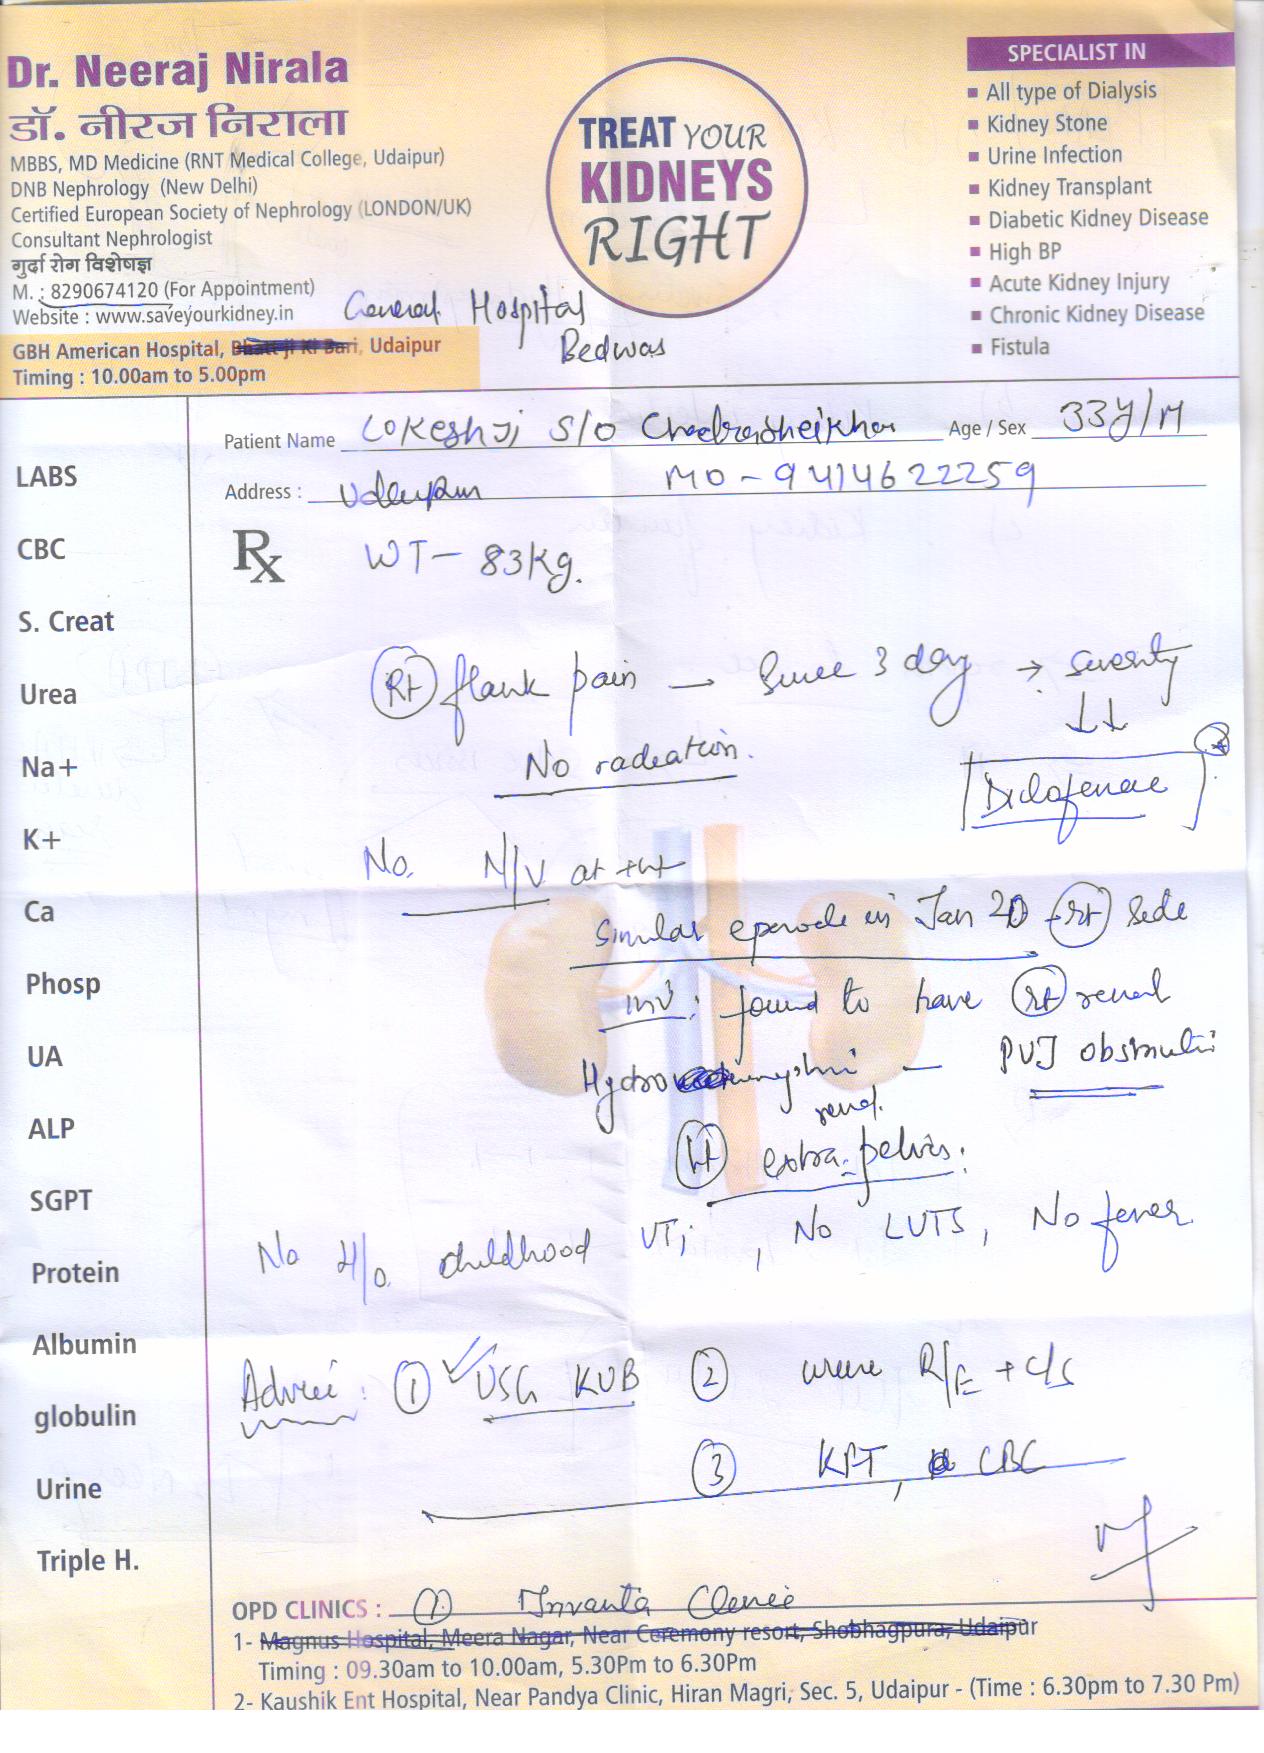 Dr. Neeraj Nirala
डॉ. नीरज निराला
MBBS, MD Medicine (RNT Medical College, Udaipur)
DNB Nephrology (New Delhi)
Certified European Society of Nephrology (LONDON/UK)
Consultant Nephrologist
गुर्दा रोग विशेषज्ञ
M. : 8290674120 (For Appointment)
Website : www.saveyourkidney.in
GBH American Hospital, Bhatt ji Ki Bari, Udaipur
Timing : 10.00am to 5.00pm
General Hospital
Bedwas
TREAT YOUR
KIDNEYS
RIGHT
SPECIALIST IN
All type of Dialysis
Kidney Stone
Urine Infection
Kidney Transplant
Diabetic Kidney Disease
High BP
Acute Kidney Injury
Chronic Kidney Disease
Fistula
Patient Name Lokesh Ji S/O Age / Sex 33Y/M
Address : Udaipur MO - 9414622259
LABS
CBC
S. Creat
Urea
Na+
K+
Ca
Phosp
UA
ALP
SGPT
Protein
Albumin
globulin
Urine
Triple H.
Rx WT - 83Kg.
Rt flank pain — Since 3 day → severity ↓↓
No radeation.
Diclofenac
No. N/V at
Similar episode in Jan 20 rt side
inv: found to have rt renal
Hydro — PUJ obstructi
renal
extra pelvis:
No H/o childhood UTi, No LUTS, No fever
Advice: ① USG KUB ② urine R/E + C/S
③ KFT, CBC
OPD CLINICS : ① Invanta Clinic
1- Magnus Hospital, Meera Nagar, Near Ceremony resort, Shobhagpura, Udaipur
Timing : 09.30am to 10.00am, 5.30Pm to 6.30Pm
2- Kaushik Ent Hospital, Near Pandya Clinic, Hiran Magri, Sec. 5, Udaipur - (Time : 6.30pm to 7.30 Pm)